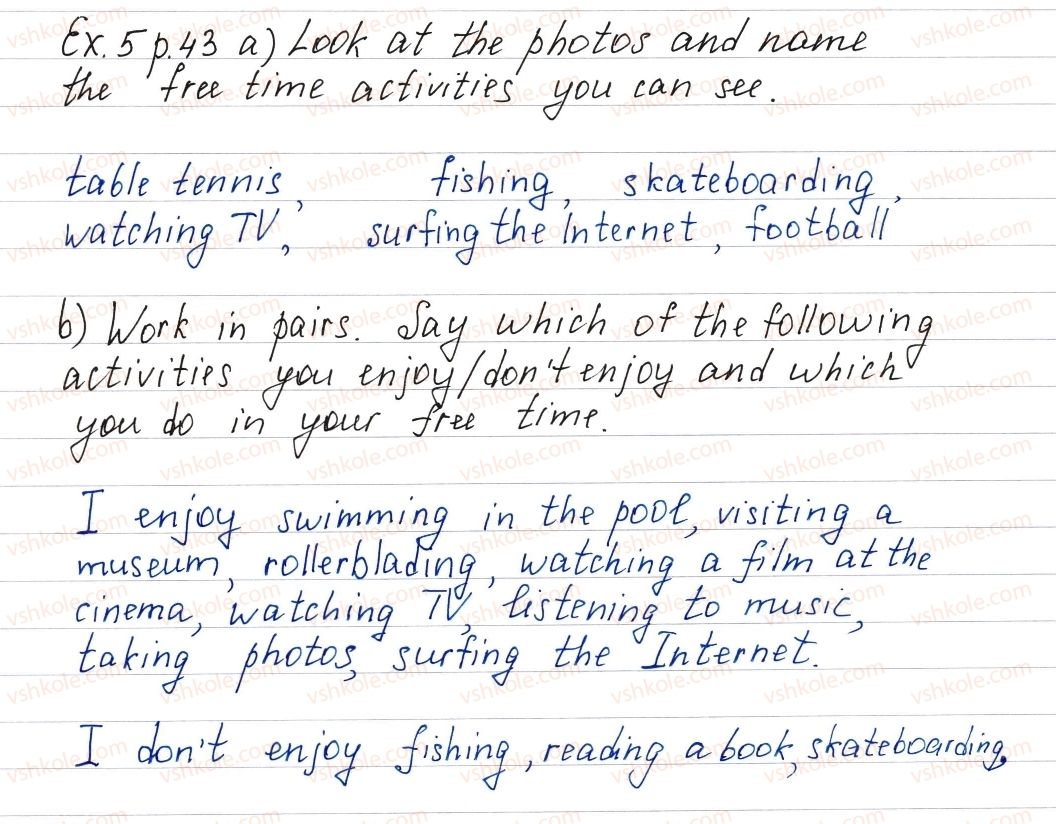 Ex. 5 p. 43 a) Look at the photos and name
the free time activities you can see.
table tennis, fishing, skateboarding,
watching TV, surfing the Internet, football
b) Work in pairs. Say which of the following
activities you enjoy/don't enjoy and which
you do in your free time.
I enjoy swimming in the pool, visiting a
museum, rollerblading, watching a film at the
cinema, watching TV, listening to music,
taking photos, surfing the Internet.
I don't enjoy fishing, reading a book, skateboarding.